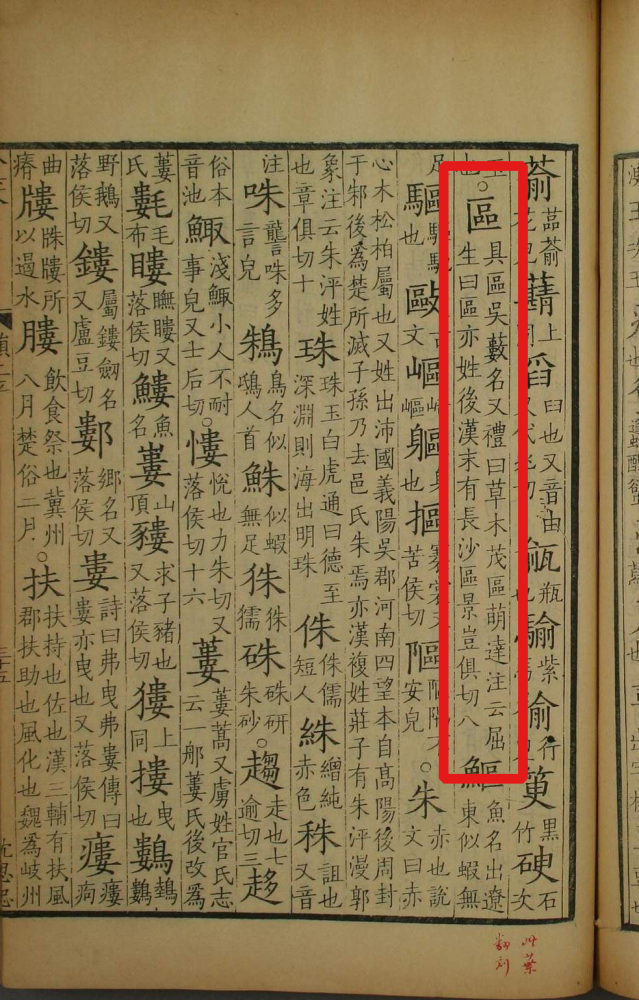 上同 舀 曰也又音由又代兆切 瓶也 騟 紫 行 黑竹 石次
玉也。區 具區吳藪名又禮曰草木茂區萌達注云屈生曰區亦姓後漢末有長沙區景豈俱切八 䲹 魚名出遼東似蝦無
足 驅 驅馳也 敺 古文 嶇 崎嶇 軀 身也 摳 褰裳又苦侯切 安皃。朱 赤也說文曰赤
心木松柏屬也又姓出沛國義陽吳郡河南四望本自高陽後周封于邾後為楚所滅子孫乃去邑氏朱焉亦漢複姓莊子有朱泙漫郭
象注云朱泙姓也章俱切十 珠 珠玉白虎通曰德至深淵則海出明珠 侏 侏儒短人 絑 繒純赤色 袾 詛也又音
注 咮 言皃 多 鴸 鳥名似鴟人首 鮢 似蝦無足 獳 硃 硃研朱砂。趨 走也七逾切三 趍
俗本音池 鯫 淺鯫小人不耐事皃又士后切。慺 悅也力朱切又落侯切十六 蔞 蔞蒿又虜姓官氏志云一那蔞氏後改爲
蔞氏 氀 毛布 瞜 瞴瞜又落侯切 鱸 魚名 嶁 山頂 貗 求子豬也又落侯切 上同 摟 曳也 鷜 鵱鷜
野鵝又落侯切 鏤 屬鏤劒名又盧豆切 鄻 鄉名又落侯切 婁 詩曰弗曳弗婁傳曰婁亦曳也又落侯切 瘻 瘻痀
曲瘠 所以遏水 膢 飲食祭也冀州八月楚俗二月。扶 扶持也佐也漢三輔有扶風郡扶助也風化也魏爲岐州
三十五
沈思忠
此葉
翻刻